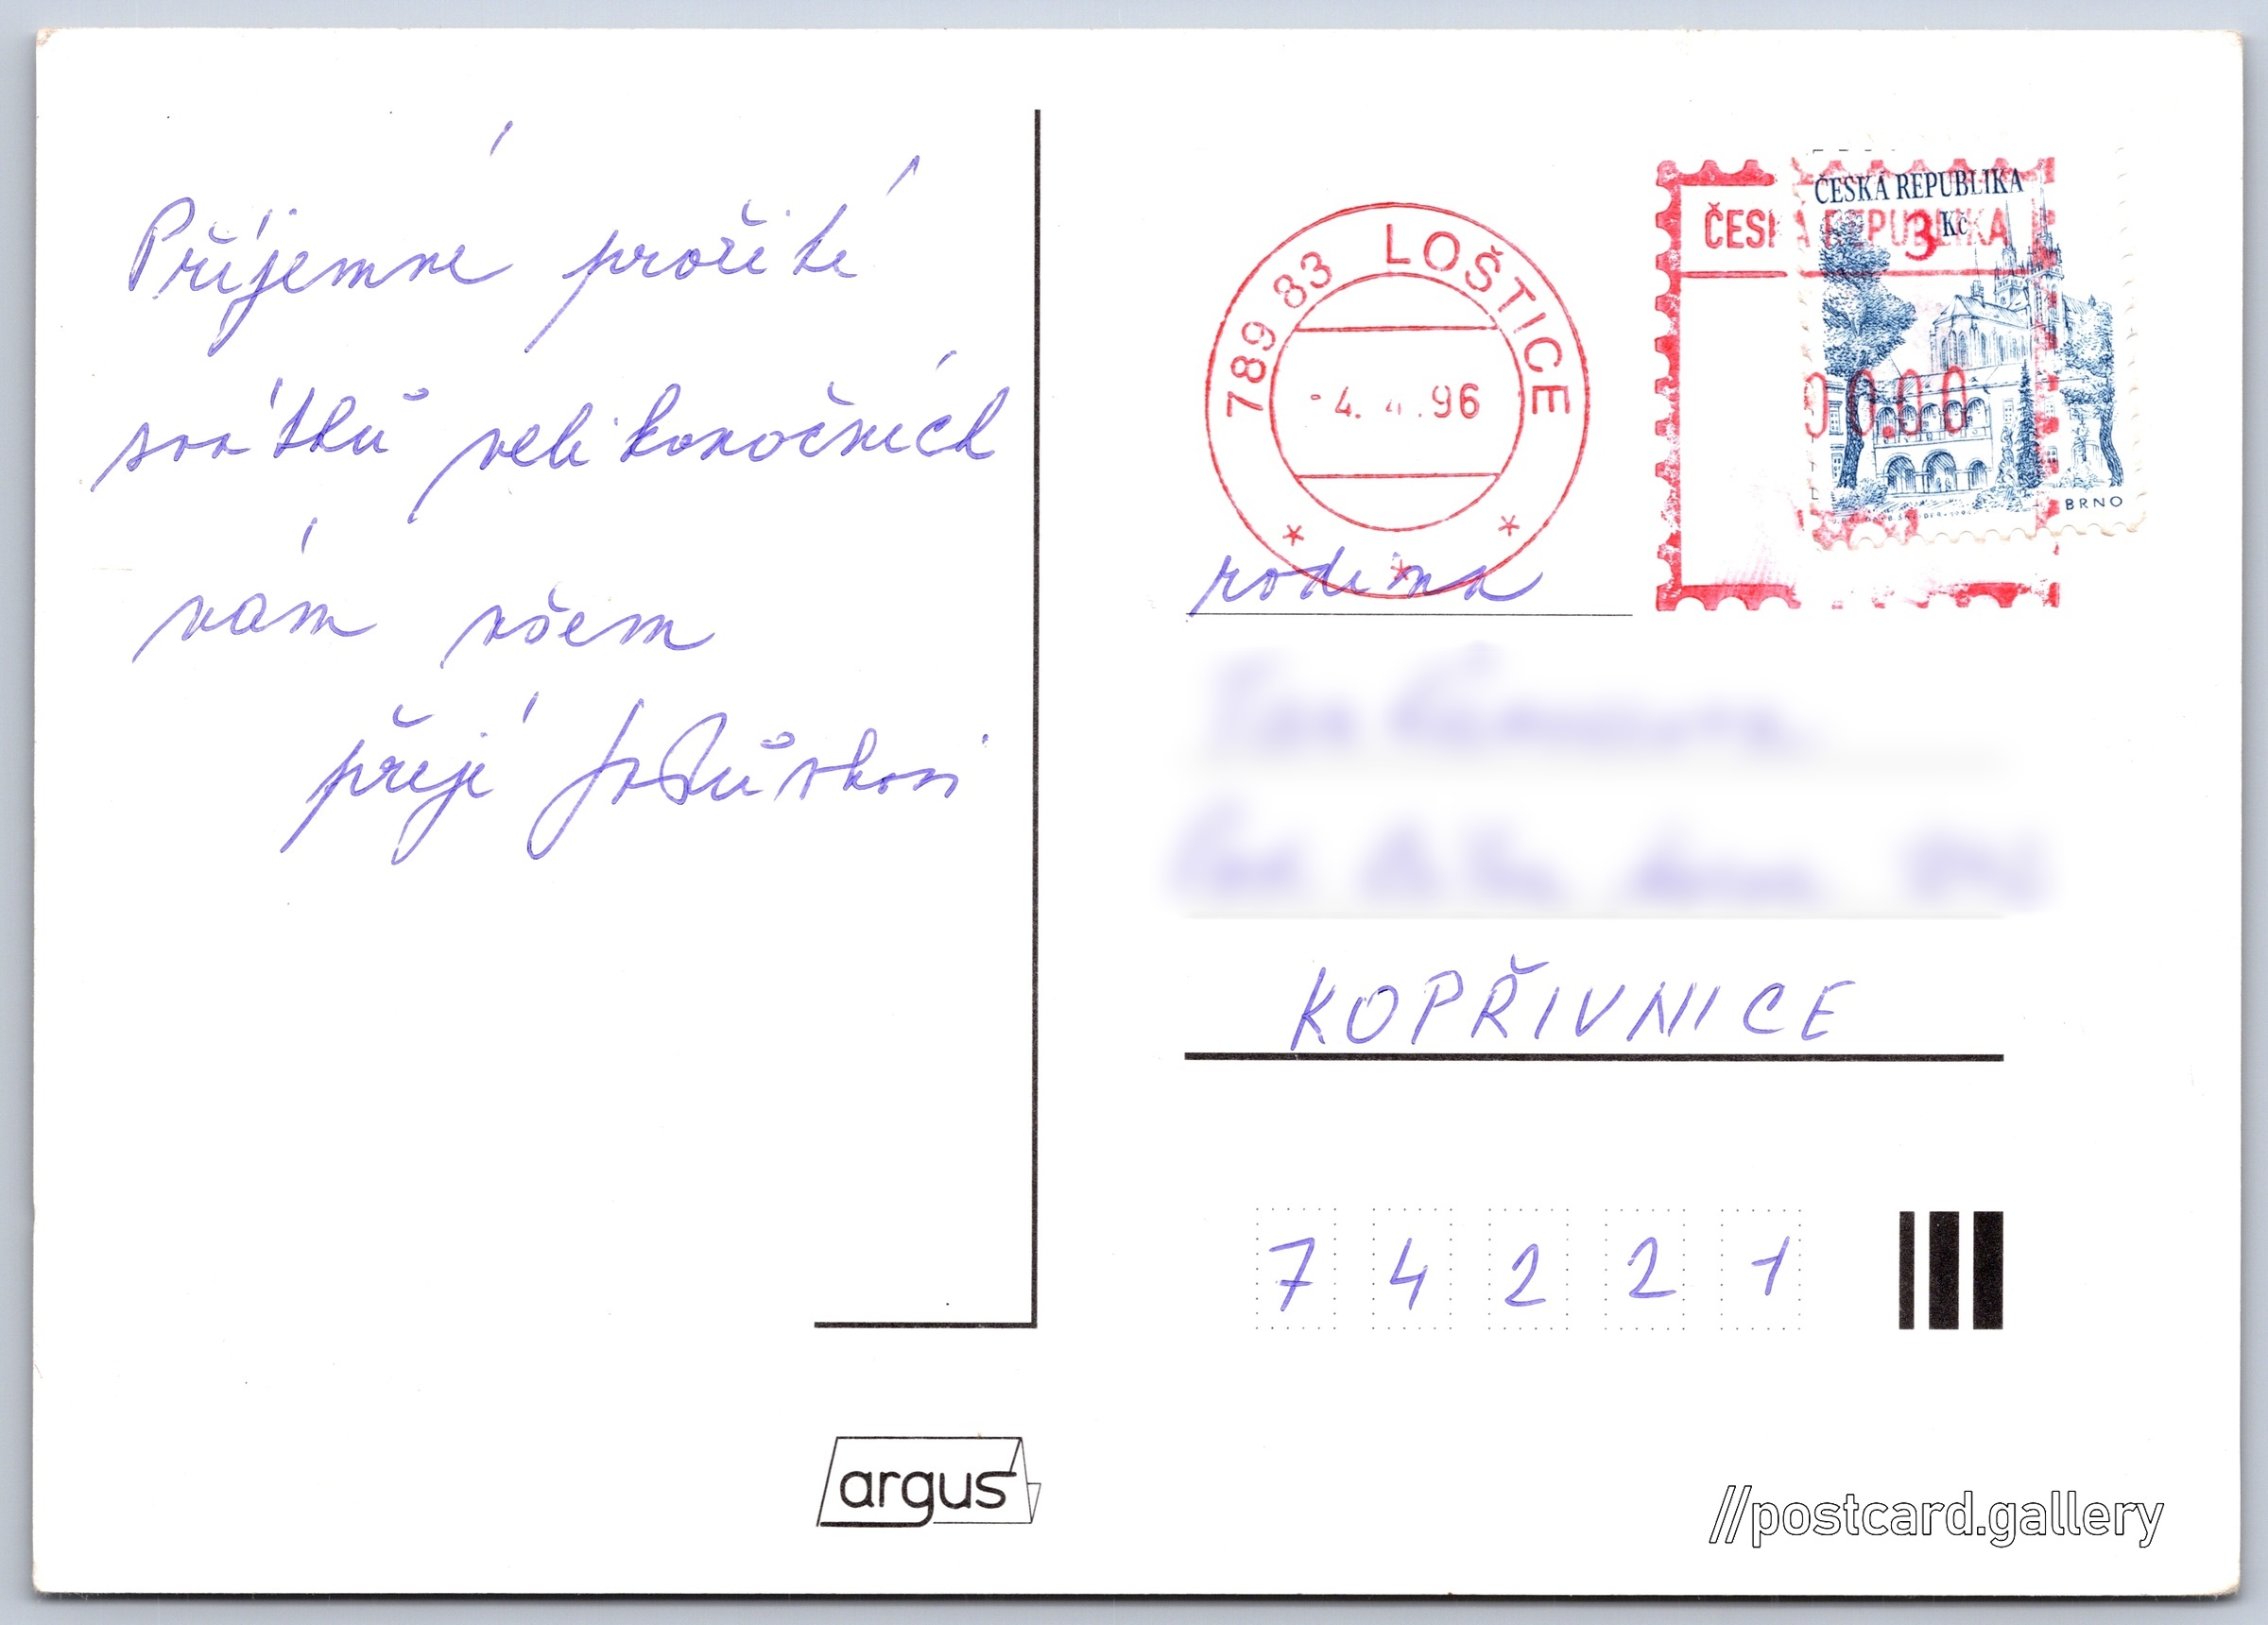 Příjemné prožité
svátků velikonočních
vám všem
přejí
789 83 LOŠTICE
-4. 4. 96
ČESKÁ REPUBLIKA
ČESKÁ REPUBLIKA
3 Kč
0000
BRNO
rodina
KOPŘIVNICE
7 4 2 2 1
argus
//postcard.gallery